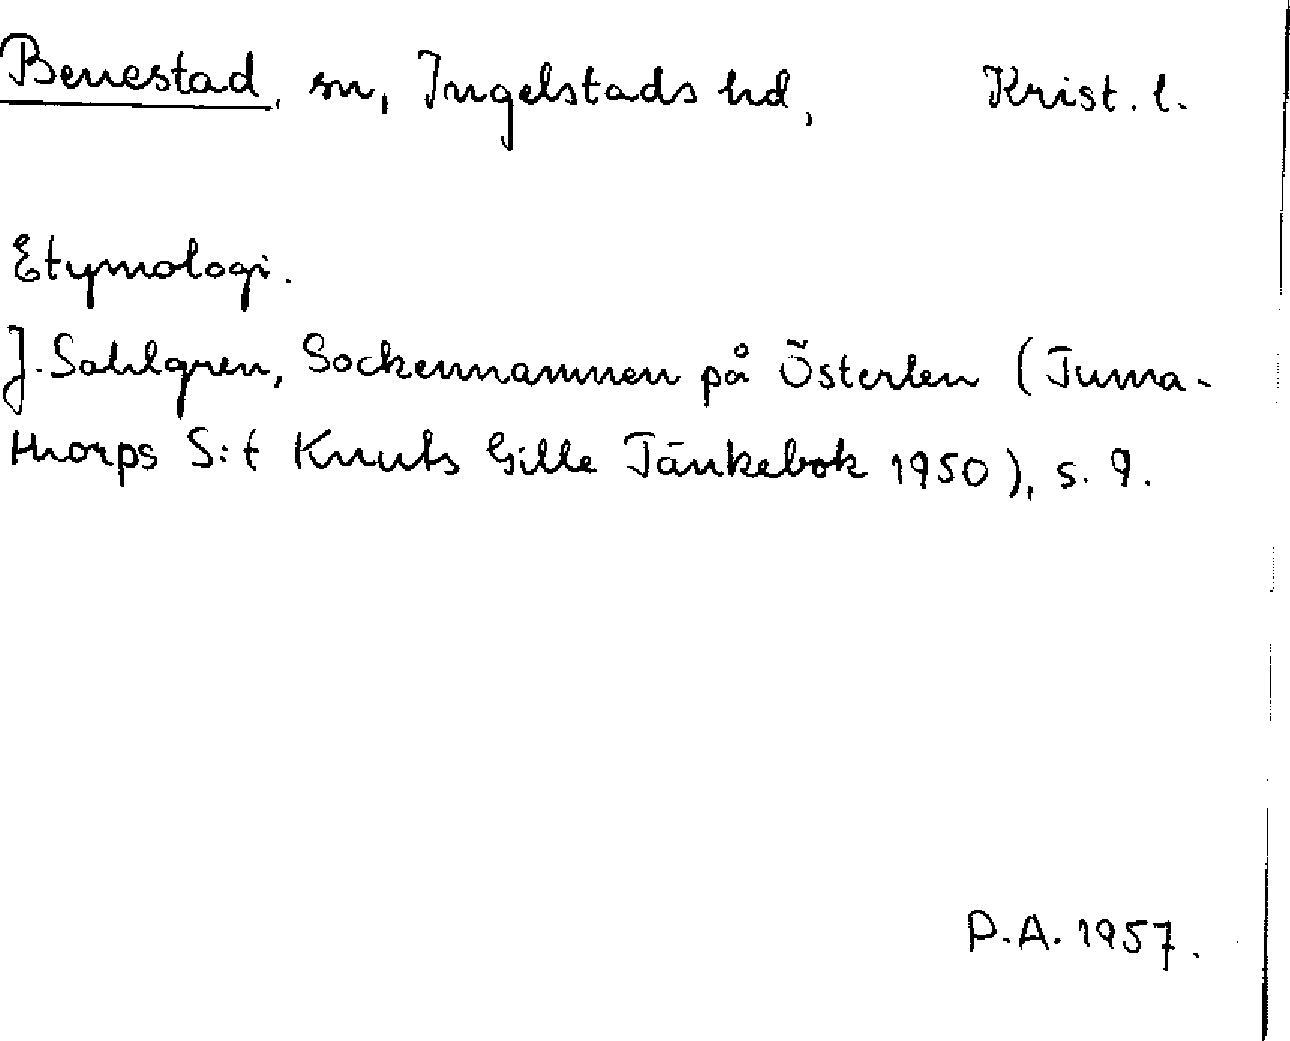 Benestad, sn, Ingelstads hd, Krist. l.
Etymologi.
J. Sahlgren, Sockennamnen på Österlen (Tuma-
thorps S:t Knuts Gille Tänkebok 1950), s. 9.
P.A. 1957.